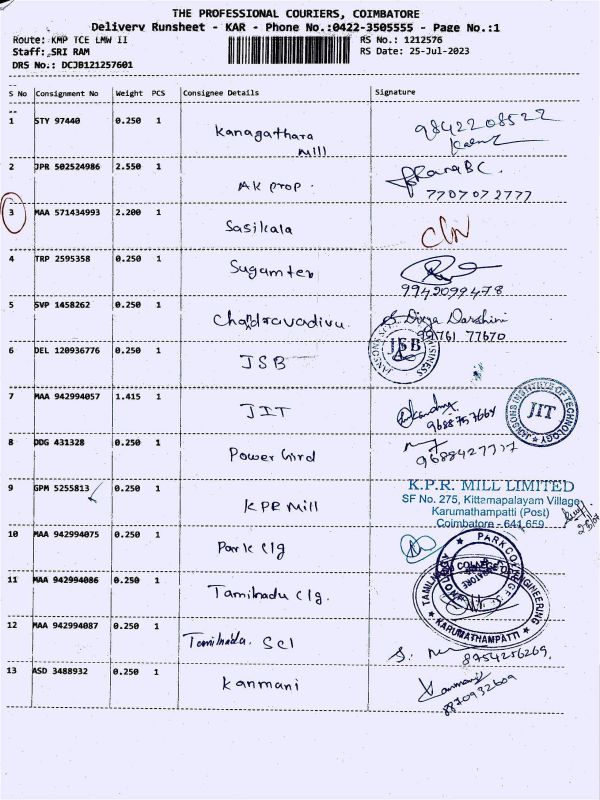 THE PROFESSIONAL COURIERS, COIMBATORE
Delivery Runsheet - KAR - Phone No.:0422-3505555 - Page No.:1
Route: KMP TCE LMW II
RS No.: 1212576
Staff: SRI RAM
RS Date: 25-Jul-2023
DRS No.: DCJB121257601
S No Consignment No Weight PCS Consignee Details Signature
1 STY 97440 0.250 1 Kanagathara Mill 9842208522
2 JPR 502524986 2.550 1 AK prop. 7707072777
3 MAA 571434993 2.200 1 Sasikala
4 TRP 2595358 0.250 1 Sugamtex 9942099478
5 SVP 1458262 0.250 1 Chandravadivu. S. Divya Darshini
77670
6 DEL 120936776 0.250 1 JSB JSB
7 MAA 942994057 1.415 1 JIT 9688757664
JANSONS INSTITUTE OF TECHNOLOGY JIT
8 DDG 431328 0.250 1 Power Gird
9 GPM 5255813 0.250 1 KPR Mill
K.P.R. MILL LIMITED
SF No. 275, Kittampalayam Village
Karumathampatti (Post)
Coimbatore - 641 659
10 MAA 942994075 0.250 1 Park Clg
11 MAA 942994086 0.250 1 Tamilnadu Clg.
KARUMATHAMPATTI
12 MAA 942994087 0.250 1 Tamilnadu. Scl 8754256269.
13 ASD 3488932 0.250 1 Kanmani Kanmani
8870932609